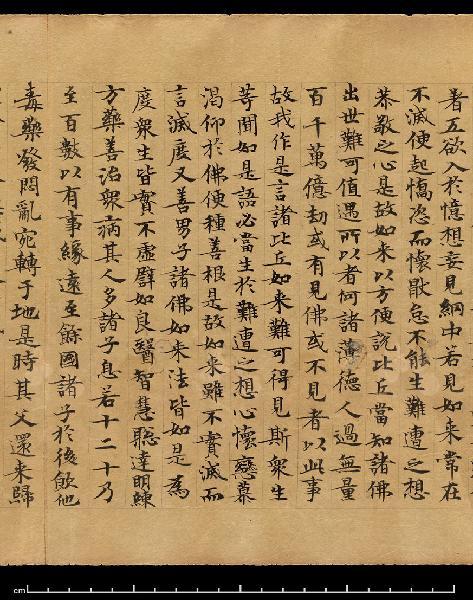 著五欲入於憶想妄見網中若見如来常在
不滅便起憍恣而懷猒怠不能生難遭之想
恭敬之心是故如来以方便說比丘當知諸佛
出世難可值遇所以者何諸薄德人過無量
百千萬億劫或有見佛或不見者以此事
故我作是言諸比丘如来難可得見斯衆生
等聞如是語必當生於難遭之想心懷戀慕
渴仰於佛便種善根是故如来雖不實滅而
言滅度又善男子諸佛如来法皆如是為
度衆生皆實不虛譬如良醫智慧聰達明練
方藥善治衆病其人多諸子息若十二十乃
至百數以有事緣遠至餘國諸子於後飲他
毒藥發悶亂宛轉于地是時其父還来歸
cm